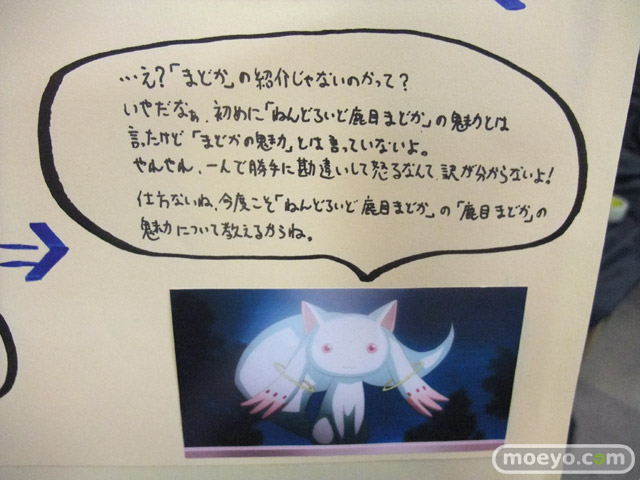 …え?「まどか」の紹介じゃないのかって?
いやだなぁ、初めに「ねんどろいど鹿目まどか」の魅力とは
言ったけど「まどかの魅力」とは言っていないよ。
やれやれ、一人で勝手に勘違いして怒るなんて、訳が分からないよ!
仕方ないね、今度こそ「ねんどろいど 鹿目まどか」の「鹿目まどか」の
魅力について教えるからね。
moeyo.com